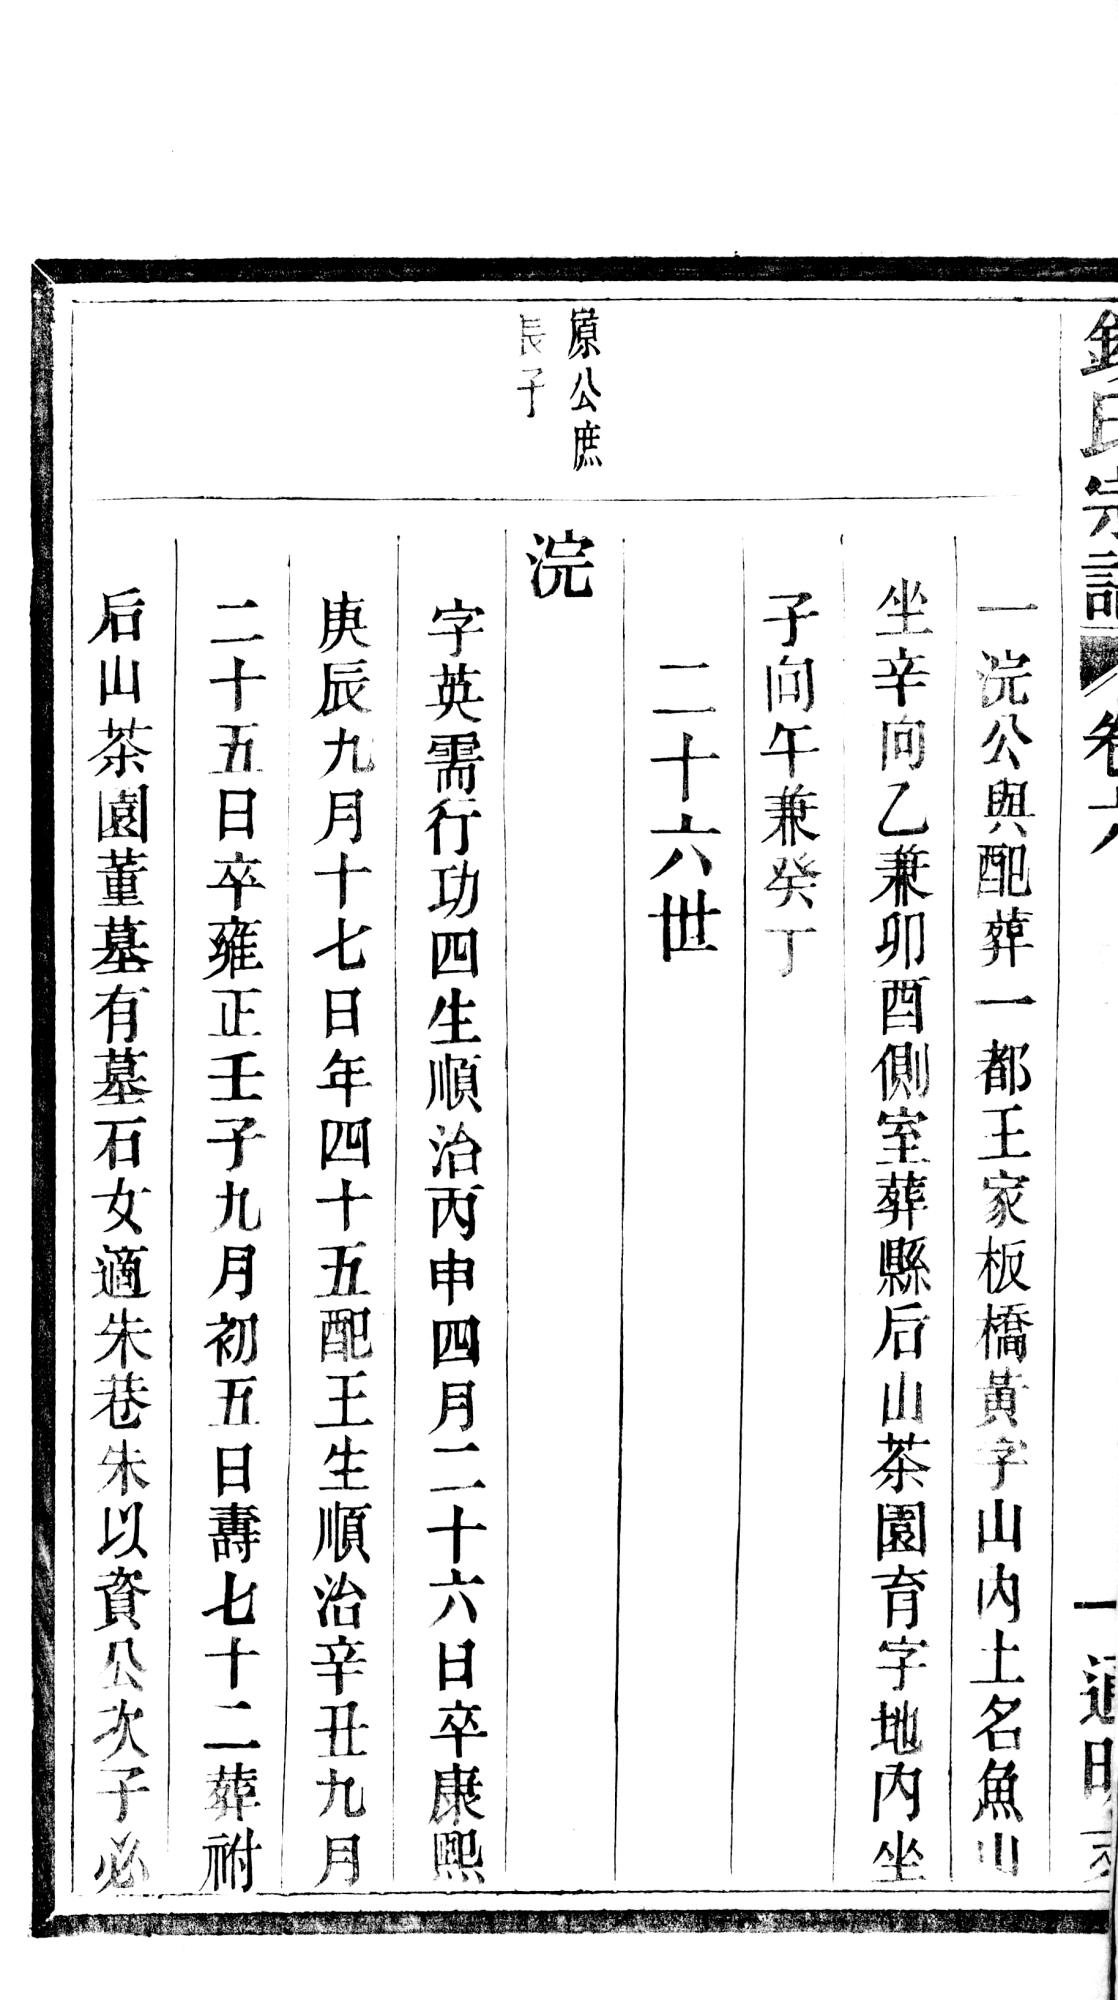 氏宗譜 卷六 一 通明
一浣公與配葬一都王家板橋黃字山內土名魚山
坐辛向乙兼卯酉側室葬縣后山茶園育字地內坐
子向午兼癸丁
二十六世
原公庶
長子
浣
字英需行功四生順治丙申四月二十六日卒康熙
庚辰九月十七日年四十五配王生順治辛丑九月
二十五日卒雍正壬子九月初五日壽七十二葬祔
后山茶園董墓有墓石女適朱巷朱以資公次子必